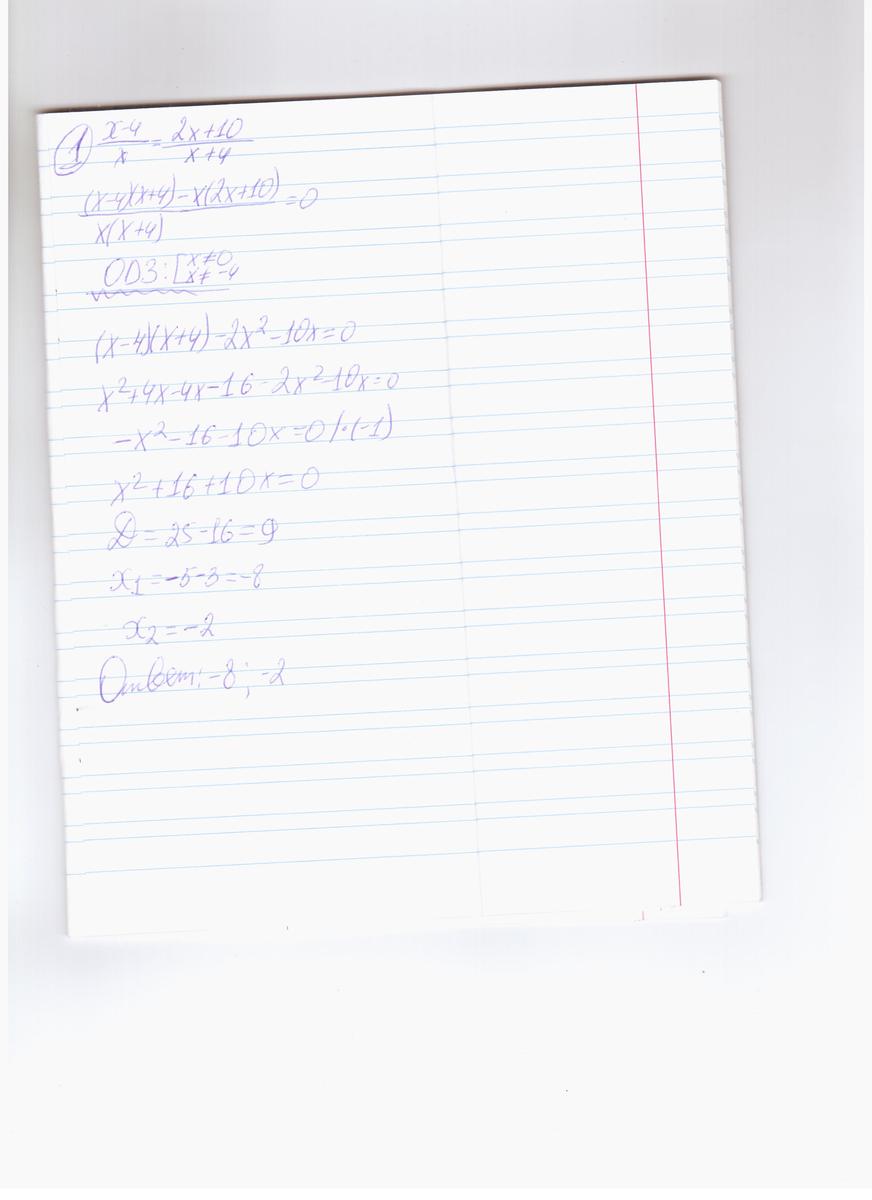 1) x-4/x = 2x+10/x+4
(x-4)(x+4)-x(2x+10)/x(x+4) =0
ОДЗ: [x≠0 x≠-4
(x-4)(x+4)-2x²-10x=0
x²+4x-4x-16-2x²-10x=0
-x²-16-10x=0 /·(-1)
x²+16+10x=0
D=25-16=9
x₁=-5-3=-8
x₂=-2
Ответ: -8; -2